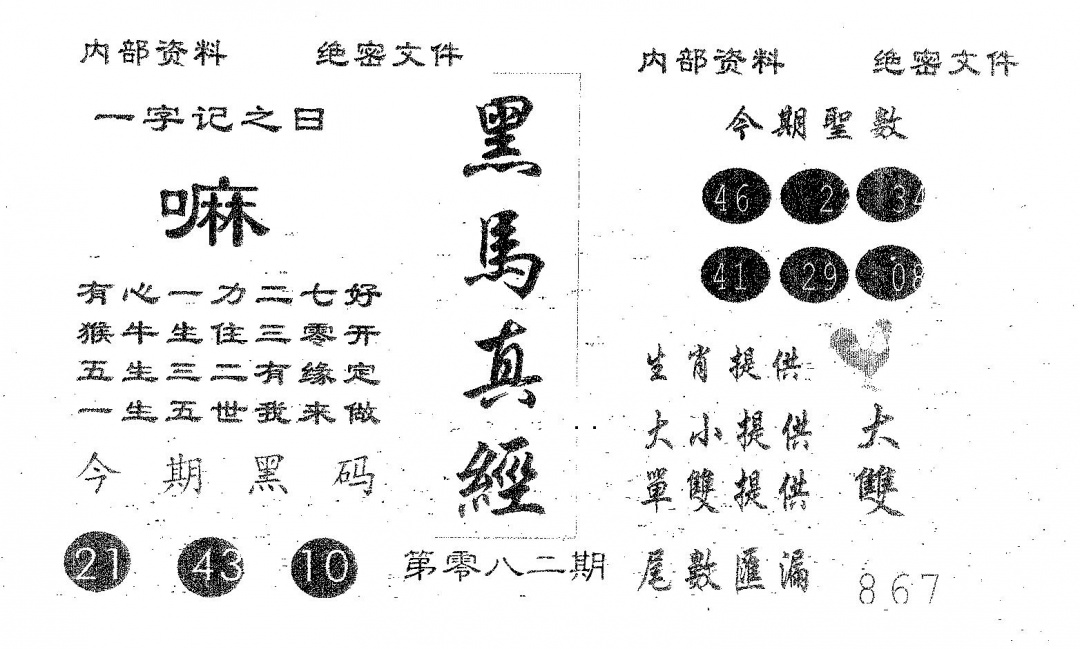 内部资料 绝密文件
一字记之曰
嘛
有心一力二七好
猴牛生住三零开
五生三二有缘定
一生五世我来做
今期黑码
21 43 10
黑馬真經
第零八二期
内部资料 绝密文件
今期聖數
46 34
41 29 08
生肖提供
大小提供 大
單雙提供 雙
尾數匯漏 867